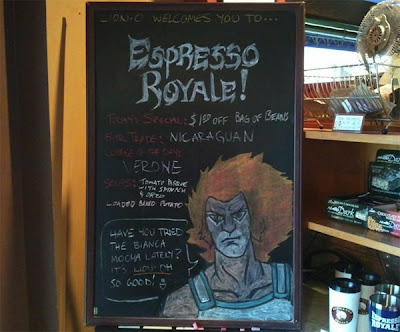 WELCOMES YOU TO...
ESPRESSO
ROYALE!
TODAY'S SPECIAL: $1.00 OFF BAG OF BEANS
FAIR TRADE: NICARAGUAN
OF THE DAY:
VERONE
SOUPS: TOMATO
WITH SPINACH
& ORZO
LOADED BAKED POTATO
HAVE YOU TRIED
THE BIANCA
MOCHA LATELY?
IT'S
SO GOOD!
Dark
ESPRESSO
ROYALE